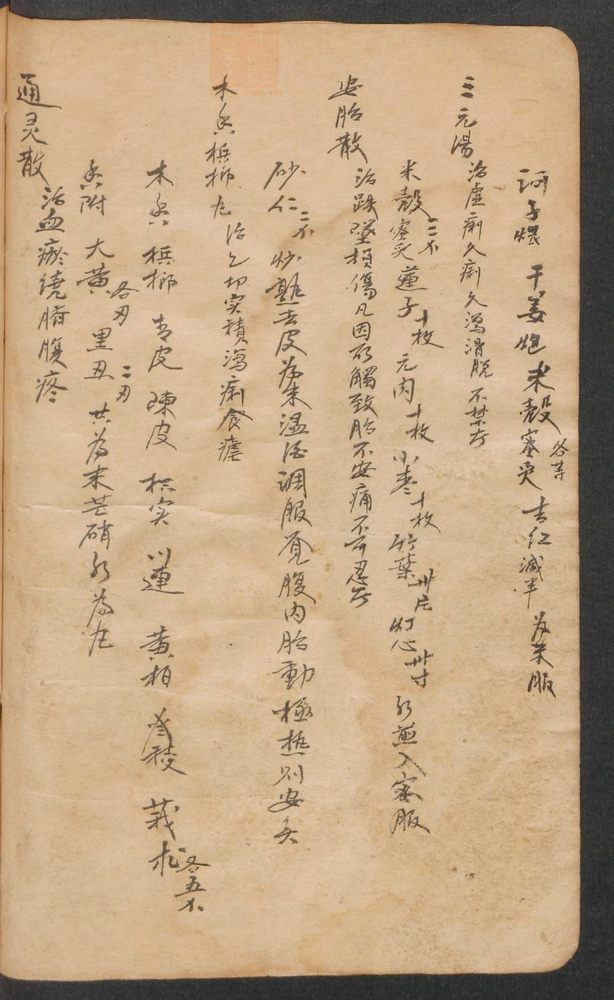 诃子煨 干姜炮 米殻蜜炙 各等 杏仁減半 为末服
三元湯 治虚痢久痢久瀉滑脱不禁方
米殻蜜炙三不 蓮子十枚 元肉十枚 小枣十枚 竹葉卅片 灯心卅寸 水煎入蜜服
安胎散 治跌墜損傷凡因所觸致胎不安痛不可忍方
砂仁三不 炒熟去皮为末温酒調服覓腹内胎動極热則安矣
木香梹榔丸 治乙切实積瀉痢食瘧
木香 梹榔 青皮 陳皮 枳实 川連 黄柏 三稜 莪朮 各五不
香附 大黄 各刃 黒丑 二刃 共为末芒硝水为丸
通灵散 治血瘀繞脐腹疼